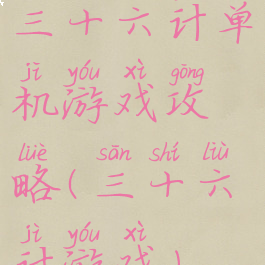 三十六计单
jī yóu xì gōng
机游戏攻
lüè sān shí liù
略(三十六
jì yóu xì
计游戏)